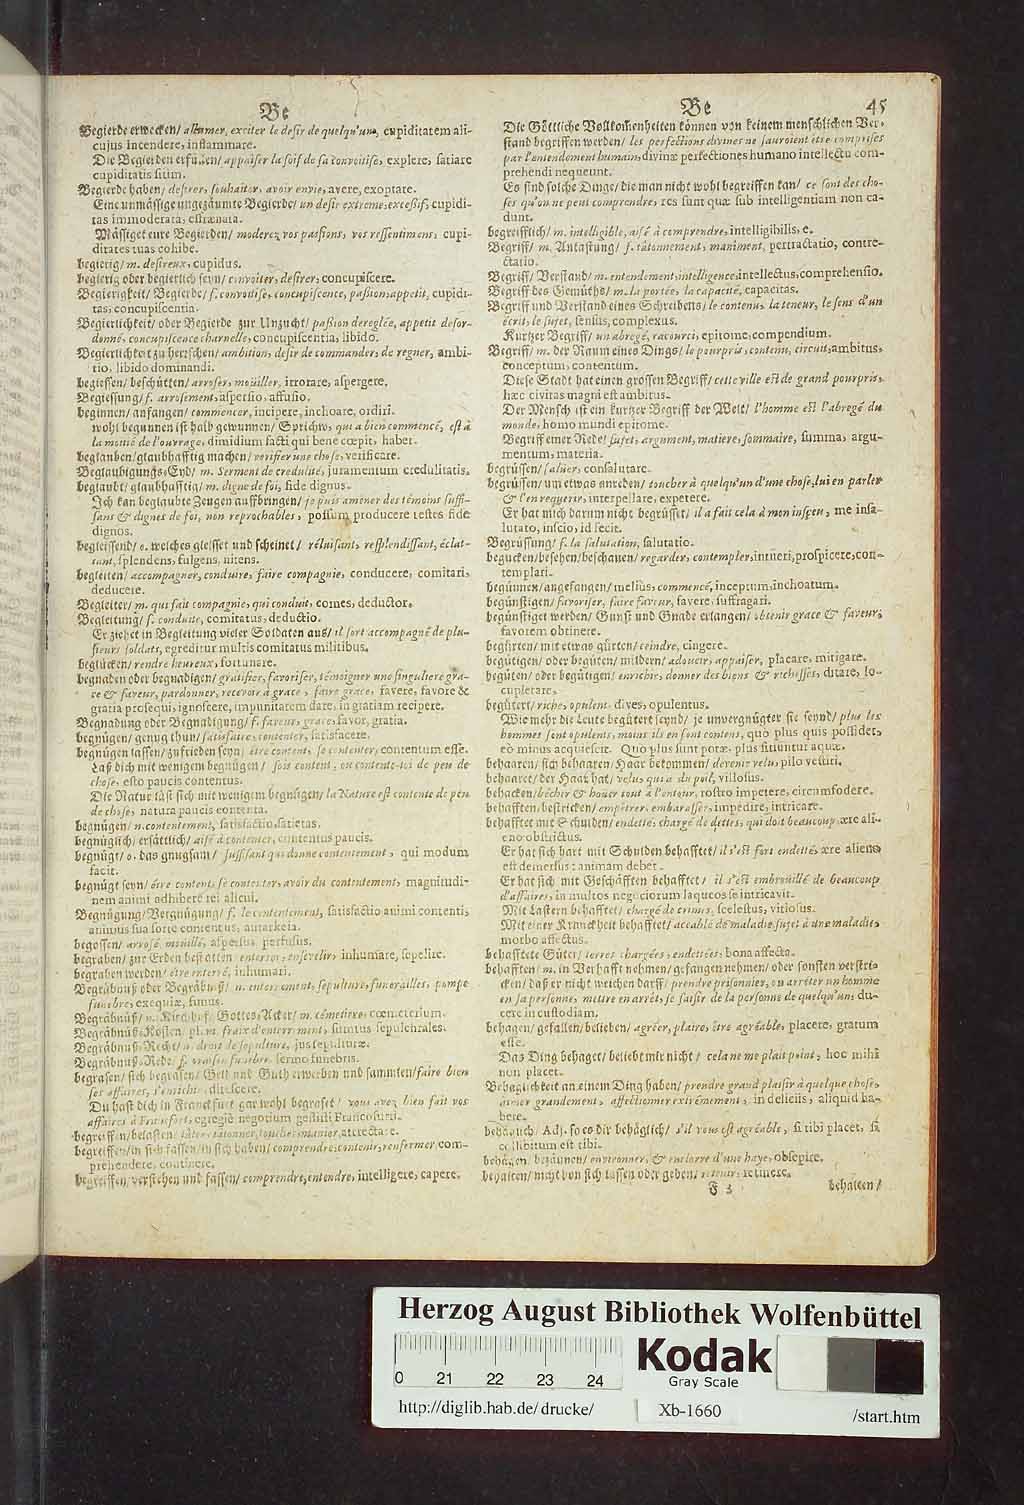 Be
Begierde erwecken/ allumer, exciter le desir de quelqu'un, cupiditatem ali-
cujus incendere, inflammare.
Die Begierden erfüllen/ appaiser la soif de sa convoitise, explere, satiare
cupiditatis sitim.
Begierde haben/ desirer, souhaiter, avoir envie, avere, exoptare.
Eine unmässige ungezäumte Begierde/ un desir extreme, excessif, cupidi-
tas immoderata, effrænata.
Mässiget eure Begierden/ moderez vos passions, vos ressentimens, cupi-
ditates tuas cohibe.
begierig/ m. desireux, cupidus.
begierig oder begierlich seyn/ convoiter, desirer, concupiscere.
Begierigkeit/ Begierde/ f. convoitise, concupiscence, passion, appetit, cupidi-
tas, concupiscentia.
Begierlichkeit/ oder Begierde zur Unzucht/ passion dereglée, appetit desor-
donné, concupiscence charnelle, concupiscentia, libido.
Begierlichkeit zu herrschen/ ambition, desir de commander, de regner, ambi-
tio, libido dominandi.
begiessen/ beschütten/ arroser, moüiller, irrorare, aspergere.
Begiessung/ f. arrosement, aspersio, affusio.
beginnen/ anfangen/ commencer, incipere, inchoare, ordiri.
wohl begunnen ist halb gewunnen/ Sprichw. qui a bien commencé, est à
la moitié de l'ouvrage, dimidium facti qui bene cœpit, habet.
beglauben/ glaubhafftig machen/ verifier une chose, verificare.
Beglaubigungs-Eyd/ m. Serment de credulité, juramentum credulitatis.
beglaubt/ glaubhafftig/ m. digne de foi, fide dignus.
Ich kan beglaubte Zeugen auffbringen/ je puis amener des témoins suffi-
sans & dignes de foi, non reprochables, possum producere testes fide
dignos.
begleissend/ o. welches gleisset und scheinet/ réluisant, resplendissant, éclat-
tant, splendens, fulgens, nitens.
begleiten/ accompagner, conduire, faire compagnie, conducere, comitari,
deducere.
Begleiter/ m. qui fait compagnie, qui conduit, comes, deductor.
Begleitung/ f. conduite, comitatus, deductio.
Er ziehet in Begleitung vieler Soldaten aus/ il sort accompagné de plu-
sieurs soldats, egreditur multis comitatus militibus.
beglücken/ rendre heureux, fortunare.
begnaden oder begnadigen/ gratifier, favoriser, témoigner une singuliere gra-
ce & faveur, pardonner, recevoir à grace, faire grace, favere, favore &
gratia prosequi, ignoscere, impunitatem dare, in gratiam recipere.
Begnadung oder Begnadigung/ f. faveur, grace, favor, gratia.
begnügen/ genug thun/ satisfaire, contenter, satisfacere.
begnügen lassen/ zufrieden seyn/ étre content, se contenter, contentum esse.
Laß dich mit wenigem begnügen/ sois content, ou contente-toi de peu de
chose, esto paucis contentus.
Die Natur läst sich mit wenigem begnügen/ la Nature est contente de peu
de chose, natura paucis contenta.
begnügen/ n. contentement, satisfactio, satietas.
begnüglich/ ersättlich/ aisé à contenter, contentus paucis.
begnügt/ o. das gnugsam/ suffisant qui donne contentement, qui modum
facit.
begnügt seyn/ étre content, se contenter, avoir du contentement, magnitudi-
nem animi adhibere rei alicui.
Begnügung/ Vergnügung/ f. le contentement, satisfactio animi contenti,
animus sua sorte contentus, autarkeia.
begossen/ arrosé, moüillé, aspersus, perfusus.
begraben/ zur Erden bestatten/ enterrer, ensevelir, inhumare, sepelire.
begraben werden/ étre enterré, inhumari.
Begräbnuß oder Begräbnuß/ n. enterrement, sepulture, funerailles, pompe
funebre, exequiæ, funus.
Begräbnuß/ n. Kirchhof, Gottes-Acker/ m. cémetiere, cœmeterium.
Begräbnuß-Kosten/ pl. m. fraix d'enterrement, sumtus sepulchrales.
Begräbnuß-Recht/ n. droit de sepulture, jus sepulturæ.
Begräbnuß-Rede/ f. oraison funebre, sermo funebris.
begrasen/ sich begrasen/ Gelt und Guth erwerben und sammlen/ faire bien
ses affaires, s'enrichir, ditescere.
Du hast dich in Franckfurt gar wohl begraset/ vous avez bien fait vos
affaires à Francfort, egregiè negotium gessisti Francofurti.
begreiffen/ betasten/ tâter, tâtonner, toucher, manier, attrectare.
begreiffen/ in sich fassen/ in sich haben/ comprendre, contenir, renfermer, com-
prehendere, continere.
begreiffen/ verstehen und fassen/ comprendre, entendre, intelligere, capere.
Be 45
Die Göttliche Vollkommenheiten können von keinem menschlichen Ver-
stand begriffen werden/ les perfections divines ne sauroient étre comprises
par l'entendement humain, divinæ perfectiones humano intellectu com-
prehendi nequeunt.
Es sind solche Dinge/ die man nicht wohl begreiffen kan/ ce sont des cho-
ses qu'on ne peut comprendre, res sunt quæ sub intelligentiam non ca-
dunt.
begreifflich/ m. intelligible, aisé à comprendre, intelligibilis, e.
Begriff/ m. Antastung/ f. tâtonnement, maniment, pertractatio, contre-
ctatio.
Begriff/ Verstand/ m. entendement, intelligence, intellectus, comprehensio.
Begriff des Gemüths/ m. la portée, la capacité, capacitas.
Begriff und Verstand eines Schreibens/ le contenu, la teneur, le sens d'un
écrit, le sujet, sensus, complexus.
Kurtzer Begriff/ un abregé, racourci, epitome, compendium.
Begriff/ m. der Raum eines Dings/ le pourpris, contenu, circuit, ambitus,
conceptum, contentum.
Diese Stadt hat einen grossen Begriff/ cette ville est de grand pourpris,
hæc civitas magni est ambitus.
Der Mensch ist ein kurtzer Begriff der Welt/ l'homme est l'abregé du
monde, homo mundi epitome.
Begriff einer Rede/ sujet, argument, matiere, sommaire, summa, argu-
mentum, materia.
begrüssen/ saluer, consalutare.
begrüssen/ um etwas anreden/ toucher à quelqu'un d'une chose, lui en parler
& l'en requerir, interpellare, expetere.
Er hat mich darum nicht begrüsset/ il a fait cela à mon insçeu, me insa-
lutato, inscio, id fecit.
Begrüssung/ f. la salutation, salutatio.
begucken/ besehen/ beschauen/ regarder, contempler, intueri, prospicere, con-
templari.
begunnen/ angefangen/ melius, commencé, inceptum, inchoatum.
begünstigen/ favoriser, faire faveur, favere, suffragari.
begünstiget werden/ Gunst und Gnade erlangen/ obtenir grace & faveur,
favorem obtinere.
begürten/ mit etwas gürten/ ceindre, cingere.
begütigen oder begüten/ mildern/ adoucir, appaiser, placare, mitigare.
begüten/ oder begütigen/ enrichir, donner des biens & richesses, ditare, lo-
cupletare.
begütert/ riche, opulent, dives, opulentus.
Wie mehr die Leute begütert seynd/ je unvergnügter sie seynd/ plus les
hommes sont opulents, moins ils en sont contens, quo plus quis possidet,
eò minus acquiescit. Quo plus sunt potæ, plus sitiuntur aquæ.
behaaren/ sich behaaren/ Haar bekommen/ devenir velu, pilo vestiri.
behaaret/ der Haar hat/ velu, qui a du poil, villosus.
behacken/ bêcher & houer tout à l'entour, rostro impetere, circumfodere.
behafften/ bestricken/ empétrer, embarasser, impedire, intricare.
behafftet mit Schulden/ endetté, chargé de dettes, qui doit beaucoup, ære ali-
eno obstrictus.
Er hat sich hart mit Schulden behafftet/ il s'est fort endetté, ære alieno
est demersus: animam debet.
Er hat sich mit Geschäfften behafftet/ il s'est embrouillé de beaucoup
d'affaires, in multos negociorum laqueos se intricavit.
Mit Lastern behafftet/ chargé de crimes, scelestus, vitiosus.
Mit einer Kranckheit behafftet/ accablé de maladie, sujet à une maladie,
morbo affectus.
behafftete Güter/ terres chargées, endettées, bona affecta.
behafften/ m. in Verhafft nehmen/ gefangen nehmen/ oder sonsten verstri-
cken/ daß er nicht weichen darff/ prendre prisonnier, ou arréter un homme
en sa personne, mettre en arrét, se saisir de la personne de quelqu'un, du-
cere in custodiam.
behagen/ gefallen/ belieben/ agréer, plaire, étre agréable, placere, gratum
esse.
Das Ding behaget/ beliebt mir nicht/ cela ne me plait point, hoc mihi
non placet.
Behäglichkeit an einem Ding haben/ prendre grand plaisir à quelque chose,
aimer grandement, affectionner extrémement, in deliciis, aliquid ha-
bere.
behäglich/ Adj. so es dir behäglich/ s'il vous est agréable, si tibi placet, si
collibitum est tibi.
behägen/ bezäunen/ environner, & enclorre d'une haye, obsepire.
behalten/ nicht von sich lassen oder geben/ retenir, retinere.
F 3 behalten/
Herzog August Bibliothek Wolfenbüttel
Kodak
Gray Scale
0 21 22 23 24
http://diglib.hab.de/drucke/ Xb-1660 /start.htm